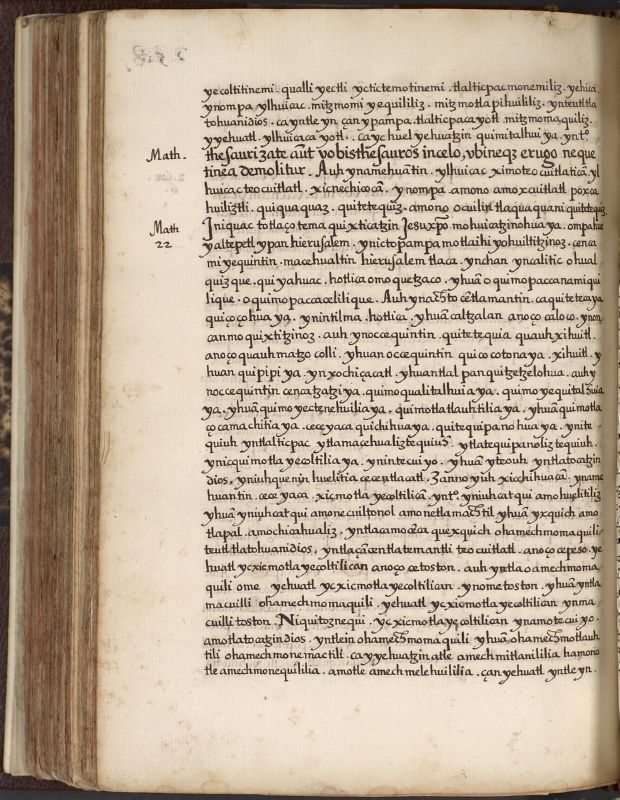 yecoltitinemi. qualli yectli yctictemotinemi. tlalticpac monemiliz. yehica,
ynompa ylhuicac. mitzmomi yequililiz. mitzmotlapihuililiz. ynteutl tla
tohuani dios. ca yntle yn çan ypampa. tlalticpacayotl mitzmomaquiliz.
yyehuatl. ylhuicacayotl. ca yc huel yehuatzin quimitalhuiya. ynto.
Math. thesaurizate aūt vobis thesauros in celo, vbi neqz erugo neque
tinea demolitur. Auh ynamehuātin. ylhuicac ximoteocuitlaticā. yl
huicac teocuitlatl. xicnechicocā. ynompa. amono amoxcuitlatl poxca
huiliztli. quiquaquaz. quitetequiz. amono ocuilin tlaquaquani quitetequiz.
Math 22 Iniquac totlaçotemaquixticatzin Jesu xp̄o mohuicatzinohuaya. ompa hue
yaltepetl ypan hierusalem. ynictopampa motlaihiyohuiltitzinoz. cenca
miyequintin. macehualtin hierusalem tlaca. ynchan yncalitic ohual
quizque. quiyahuac, hotlica omoquetzaco. yhuā oquimopaccanamiqui
lique. oquimopaccacelilique. Auh ynachto cētlamantin. ca quiteteaya
quiçoçohuaya. ynintilma. hotlica. yhuā caltzalan anoço caloco. ynon
canmoquixtitzinoz. auh ynoccequintin. quitetequia quauhxihuitl.
anoço quauhmatzocolli. yhuan occequintin quicocotonaya. xihuitl. y
huan quipipiya. ynxochiçacatl. yhuan tlalpan quitzetzelohua. auh y
noccequintin cenca tzatziya. quimoqualitalhuiaya. quimoyequitalhuia
ya. yhuā quimoyectenehuiliaya. quimotlatlauhtiliaya. yhuā quimotla
çocamachitiaya. ceceyaca quichihuaya. quitequipanohuaya. ynite
quiuh yntlalticpac ytlamacehualiztequiuh. ytlatequipanoliztequiuh.
ynicquimotlayecoltiliaya. ynintecuiyo. yhuā yteouh yntlatocatzin
dios. yniuhquenin huelitia cecentlacatl. Zanno yuh xicchihuacā. yname
huantin. ceceyaca. xicmotlayecoltilicā. ynto. yniuhcatqui amohuelitiliz
yhuā yniuhcatqui amonecuiltonol amonetlamachtil yhuā yxquich amo
tlapal. amochicahualiz. yntlacamo cēca quexquich ohamechmomaquili
teutl tlatohuani dios. yntlaçā centlatemantli teocuitlatl. anoço ce peso. ye
huatl yc xicmotlayecoltilican anoço ce toston. auh yntla oamechmoma
quili ome yehuatl yc xicmotlayecoltilican. ynome toston. yhuā yntla
macuilli ohamechmomaquili. yehuatl yc xicmotlayecoltilican ynma
cuilli toston. Niquitoznequi. yc xicmotlayecoltilican ynamotecuiyo.
amotlatocatzin dios. yntlein ohamechmomaquili yhuā ohamechmotlauh
tili ohamechmonemactili. ca yyehuatzin atle amechmitlanililia hamono
tle amechmonequililia. amotle amechmelehuililia. çan yehuatl yntleyn.